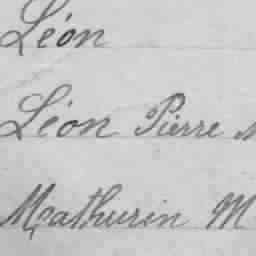 Léon
Léon Pierre M
Mathurin M